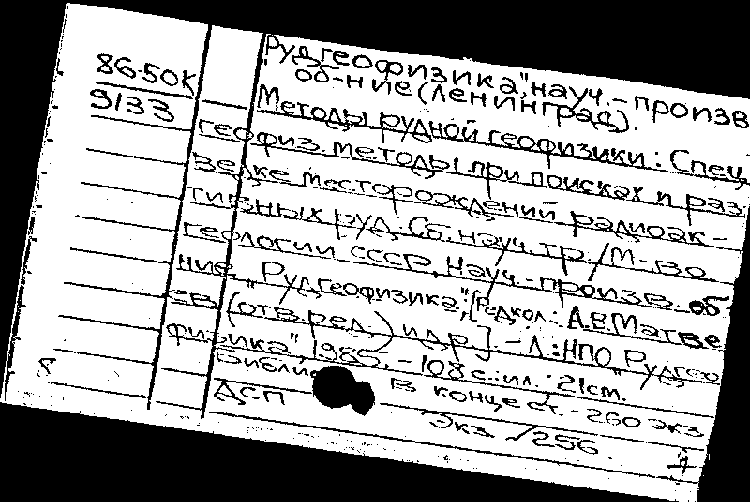 86-50К
9133
"Рудгеофизика", науч.-произв.
об-ние (Ленинград).
Методы рудной геофизики: Спец.
геофиз. методы при поисках и раз-
ведке месторождений радиоак-
тивных руд. Сб. науч. тр. / М-во
геологии СССР, Науч.-произв. об-
ние "Рудгеофизика"; [Редкол.: А.В. Матве-
ев (отв. ред.) и др.]. - Л.: НПО "Рудгео-
физика", 1985. - 108 с.: ил.; 21 см.
Библи в конце ст. - 260 экз.
ДСП
Экз. √256.
8